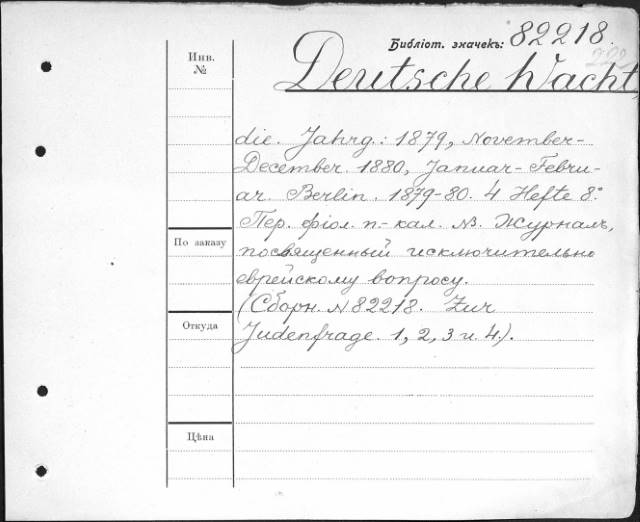 Библіот. значекъ: 82218.
Инв.
№
Deutsche Wacht,
die. Jahrg.: 1879, November-
December. 1880, Januar-Febru-
ar. Berlin. 1879-80. 4 Hefte 8°.
Пер. фіол. п.- кал. №3. Журналъ,
По заказу
посвященный исключительно
еврейскому вопросу.
(Сборн. N 82218. Zur
Откуда
Judenfrage. 1, 2, 3 и 4.).
Цѣна